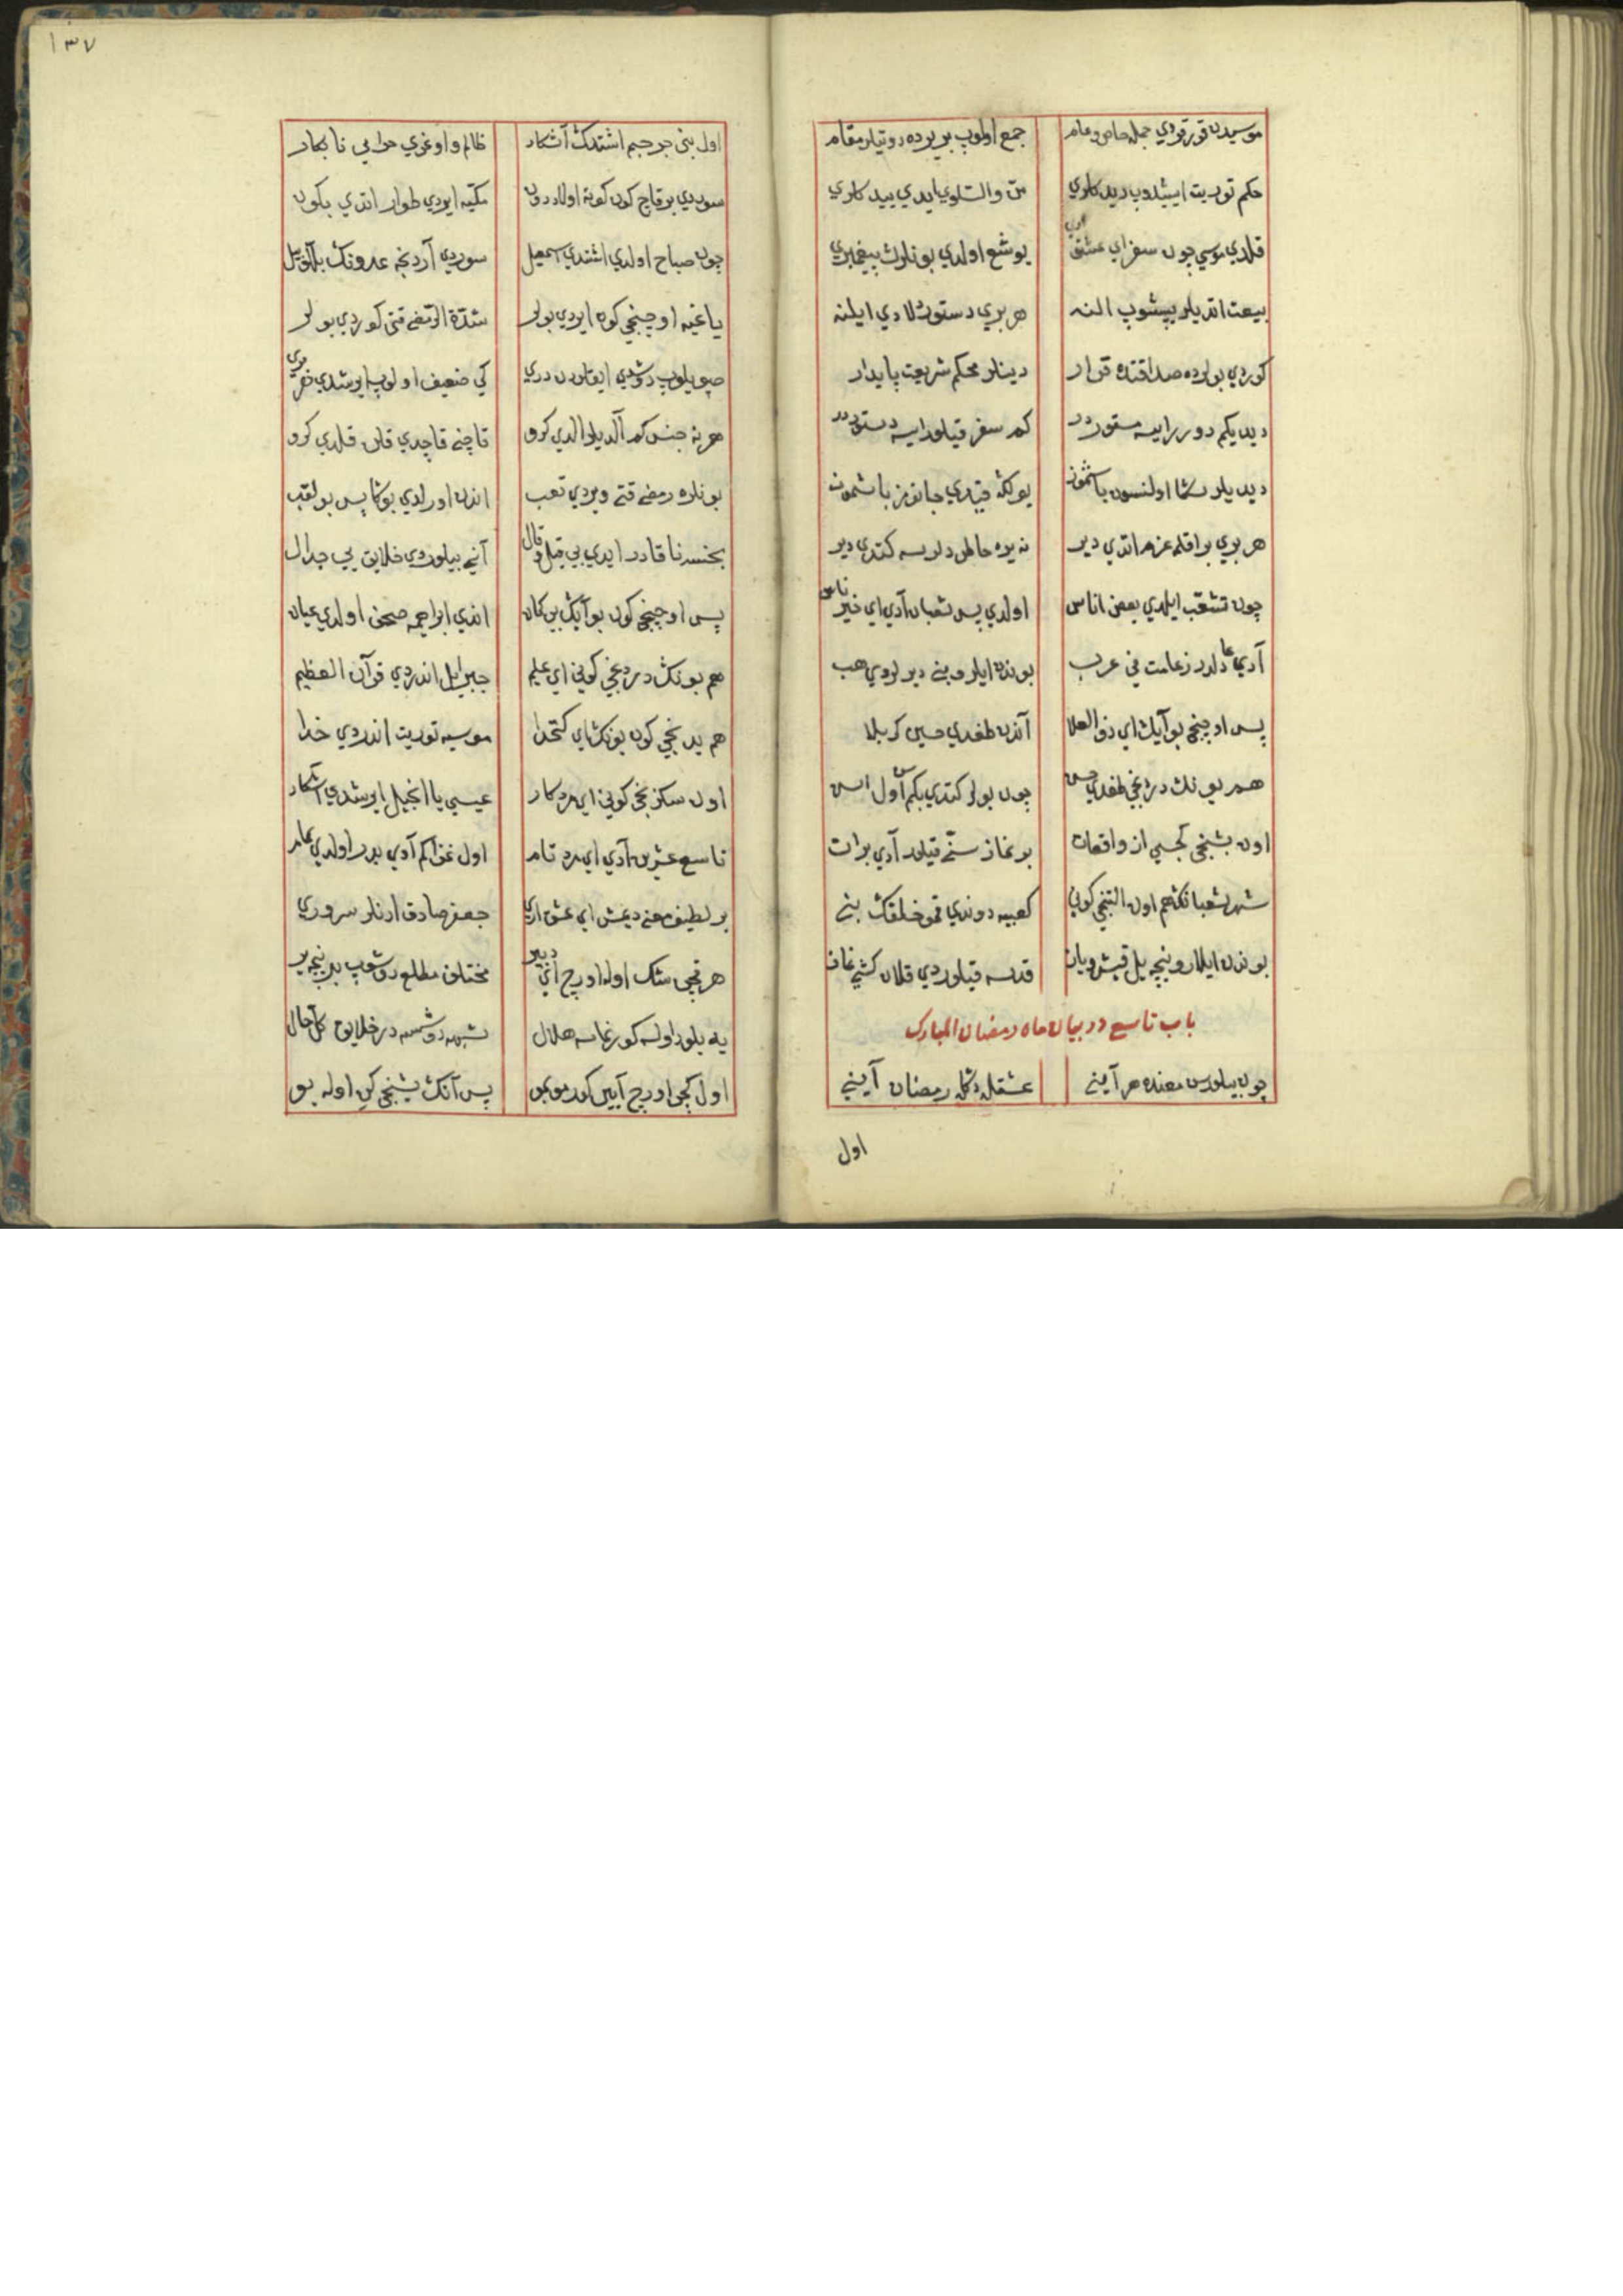 موسیدن قورقردي جمله خاص و عام جمع اولوب بر یرده دوتیلر مقام
حکم توریت ایشدوب دیدکلري من والسلوي ایدي ییدکلري
قلدي موسي چون سفر اي عشق اري یوشع اولدي بونلرك پیغمبري
بیعت اتدیلر یپشوب النه هر بري دستور دلادي ایلنه
کوردي بولرده صداقتده قرار دینلر محکم شریعت پایدار
دیدیکم دورر ایسه مستور در کم سفر قیلور ایسه دستور در
دیدیلر سکا اولنسون باشمز یولکه فیدي جانمز باشمز
هر بري بر اقلمه عزم اتدي دیر نه یره خاطر دلرسه کتدي دیر
چون تشعب ایلدي بعض اناس اولدي پس شعبان آدي اي خیر ناس
آدي عادلدر زعامت في عرب بوندن ایلرو بني دیرلردي هب
پس اوچنجي بو آیك اي ذو العلا آنده طغدي حسین کربلا
هم بونك دردنجي طغدي حسن چون بولر کتدي بکم اول
اون بشنجي کجسي از واقعات بر نماز سنت قیلور آدي برات
شهر شعبانك هم اون التنجي کوني کعبیه دوندي قمو خلقك یني
بوندن ایلارو نیجه ییل قیش و یاز قدسه قیلوردي قلان کشي نماز
باب تاسع در بیان ماه رمضان المبارك
چون بیلورسن معنده هر آیني عشقله دکله رمضان آیني
اول
١٣٧
اول بني جرجیم اشتدك آشکار ظالم و اوغري حرامي نابکار
سوردي بر قاچ کون کونه اولاد دون مکیه ایردي طوار اتدي بکون
چون صباح اولدي اشتدي اسمعیل سوردي آردنجه عدونك
یاغیه اوچنجي کون ایردي بولر شدة الرمضه قتي کوردي بولر
صویلوب دوشدي کي ضعیف اولوب ایرشدي
هر نه جنس کم آلدیلر الدي کرو قاچني قاچدي قلن قلدي کرو
بونلره رمضه قتي ویردي تعب اندن اورلدي بوکا پس بو لقب
بخسنه نا قادر ایدي بي قیل و قال آني بیلوردي خلایق بي جدال
پس اوچنجي کون بو آیك بي کمان اندي ابراهیمه صحف اولدي عیان
هم بونك دردنجي کوني اي علیم جبرائیل اندردي قرآن العظیم
هم یدنجي کون بونك اي کتخدا موسیه توریت اندردي خدا
اون سکزنجي کوني اي مرد کار عیسي یا انجیل ایرشدي آشکار
تاسع عشرین آدي اي مرد تام اول غزا کم آدي بدر اولدي تمام
بر لطیف معني دیمش اي عشق اري جعفر صادق ارنلر سروري
هر قچي شك اوله اورج اني دبیر مختلف مطلع دوشوب بدر نیجه بر
یه بلود اولسه کورنمسه هلال شبهه دوشسه در خلایق کل حال
اول کجي اورج آیین کور مو بمو پس آنك بشنجي کن اوله بو